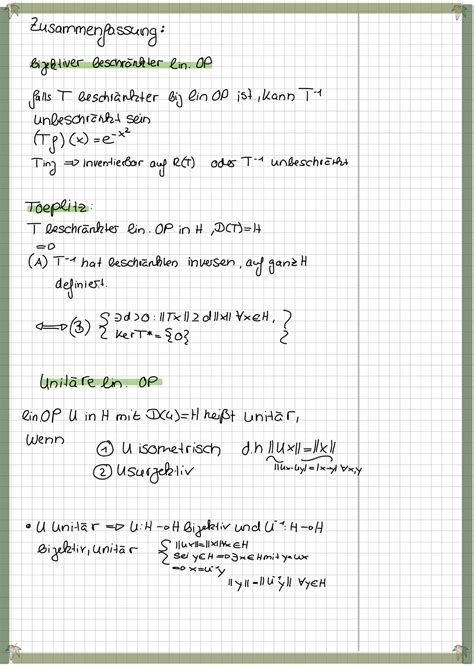 Zusammenfassung:
bijektiver beschränkter lin. OP
falls T beschränkter bij lin OP ist, kann T⁻¹
unbeschränkt sein
(Tf)(x) = e^{-x²}
T inj => invertierbar auf R(T) oder T⁻¹ unbeschränkt
Toeplitz:
T beschränkter lin. OP in H, D(T)=H
=>
(A) T⁻¹ hat beschränkten inversen, auf ganz H
definiert.
<=> (B) { ∃d>0: ||Tx|| ≥ d||x|| ∀x∈H,
Ker T* = {0} }
Unitäre lin. OP
lin. OP U in H mit D(U)=H heißt unitär,
wenn
① U isometrisch d.h ||Ux||=||x||
||Ux-Uy||=||x-y|| ∀x,y
② U surjektiv
• U unitär => U: H->H bijektiv und U⁻¹: H->H
bijektiv, unitär { ||Ux||=||x|| ∀x∈H
Sei y∈H => ∃x∈H mit y=Ux
=> x=U⁻¹y
||y||=||U⁻¹y|| ∀y∈H